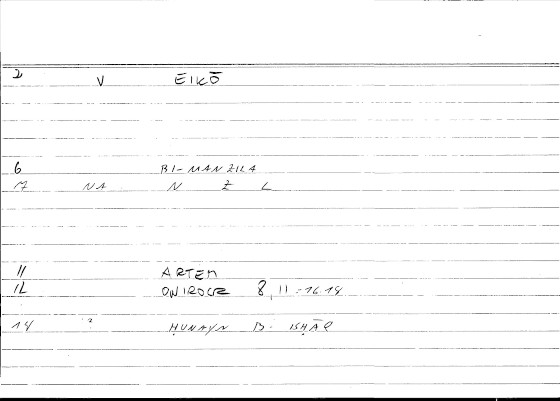 2 V EIKŌ
6 BI-MANZILA
17 NA N Z L
11 ARTEM
12 ONIROCR 8, 11 = 16.14
14 ḤUNAYN B. ISḤĀQ